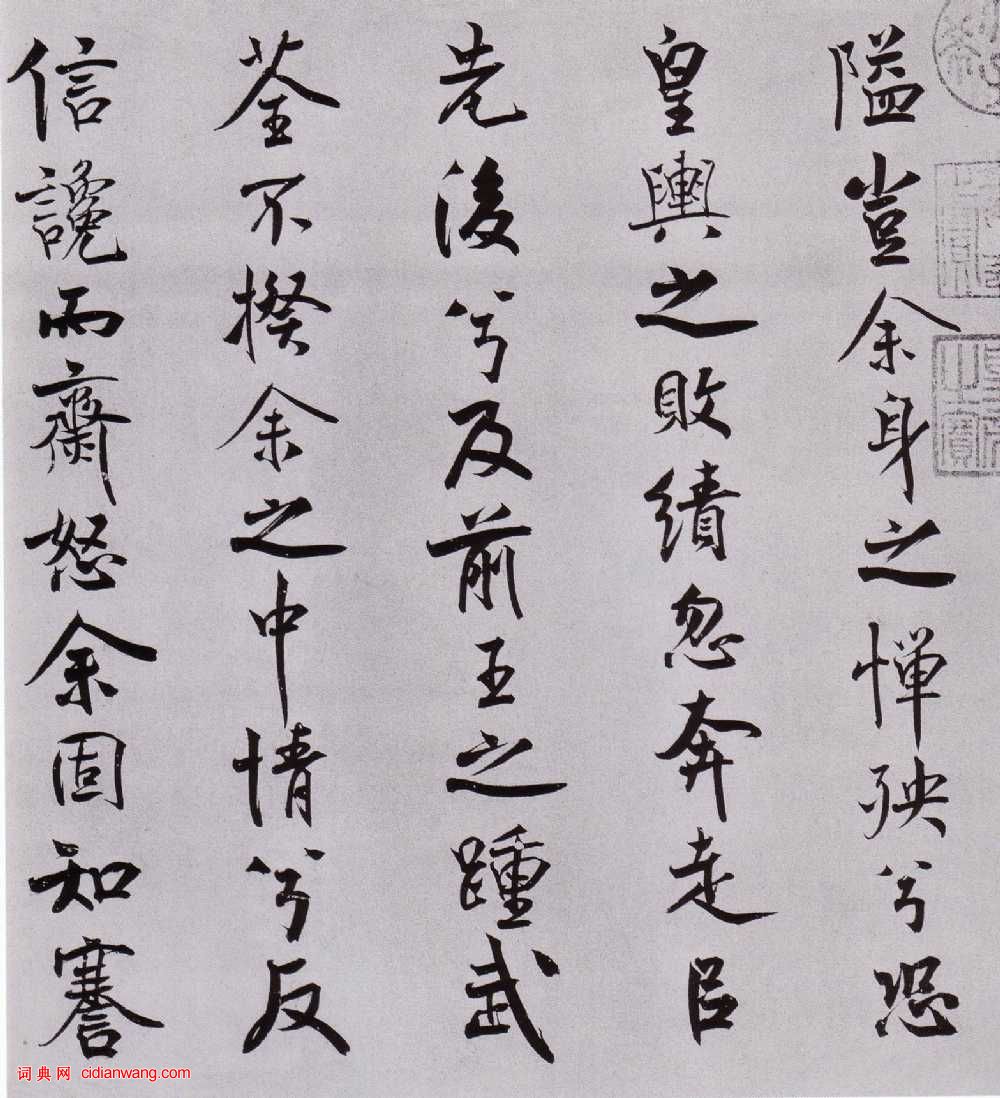 隘豈余身之憚殃兮恐
皇輿之敗績忽奔走㠯
先後兮及前王之踵武
荃不揆余之中情兮反
信讒而齌怒余固知謇
词典网 cidianwang.com